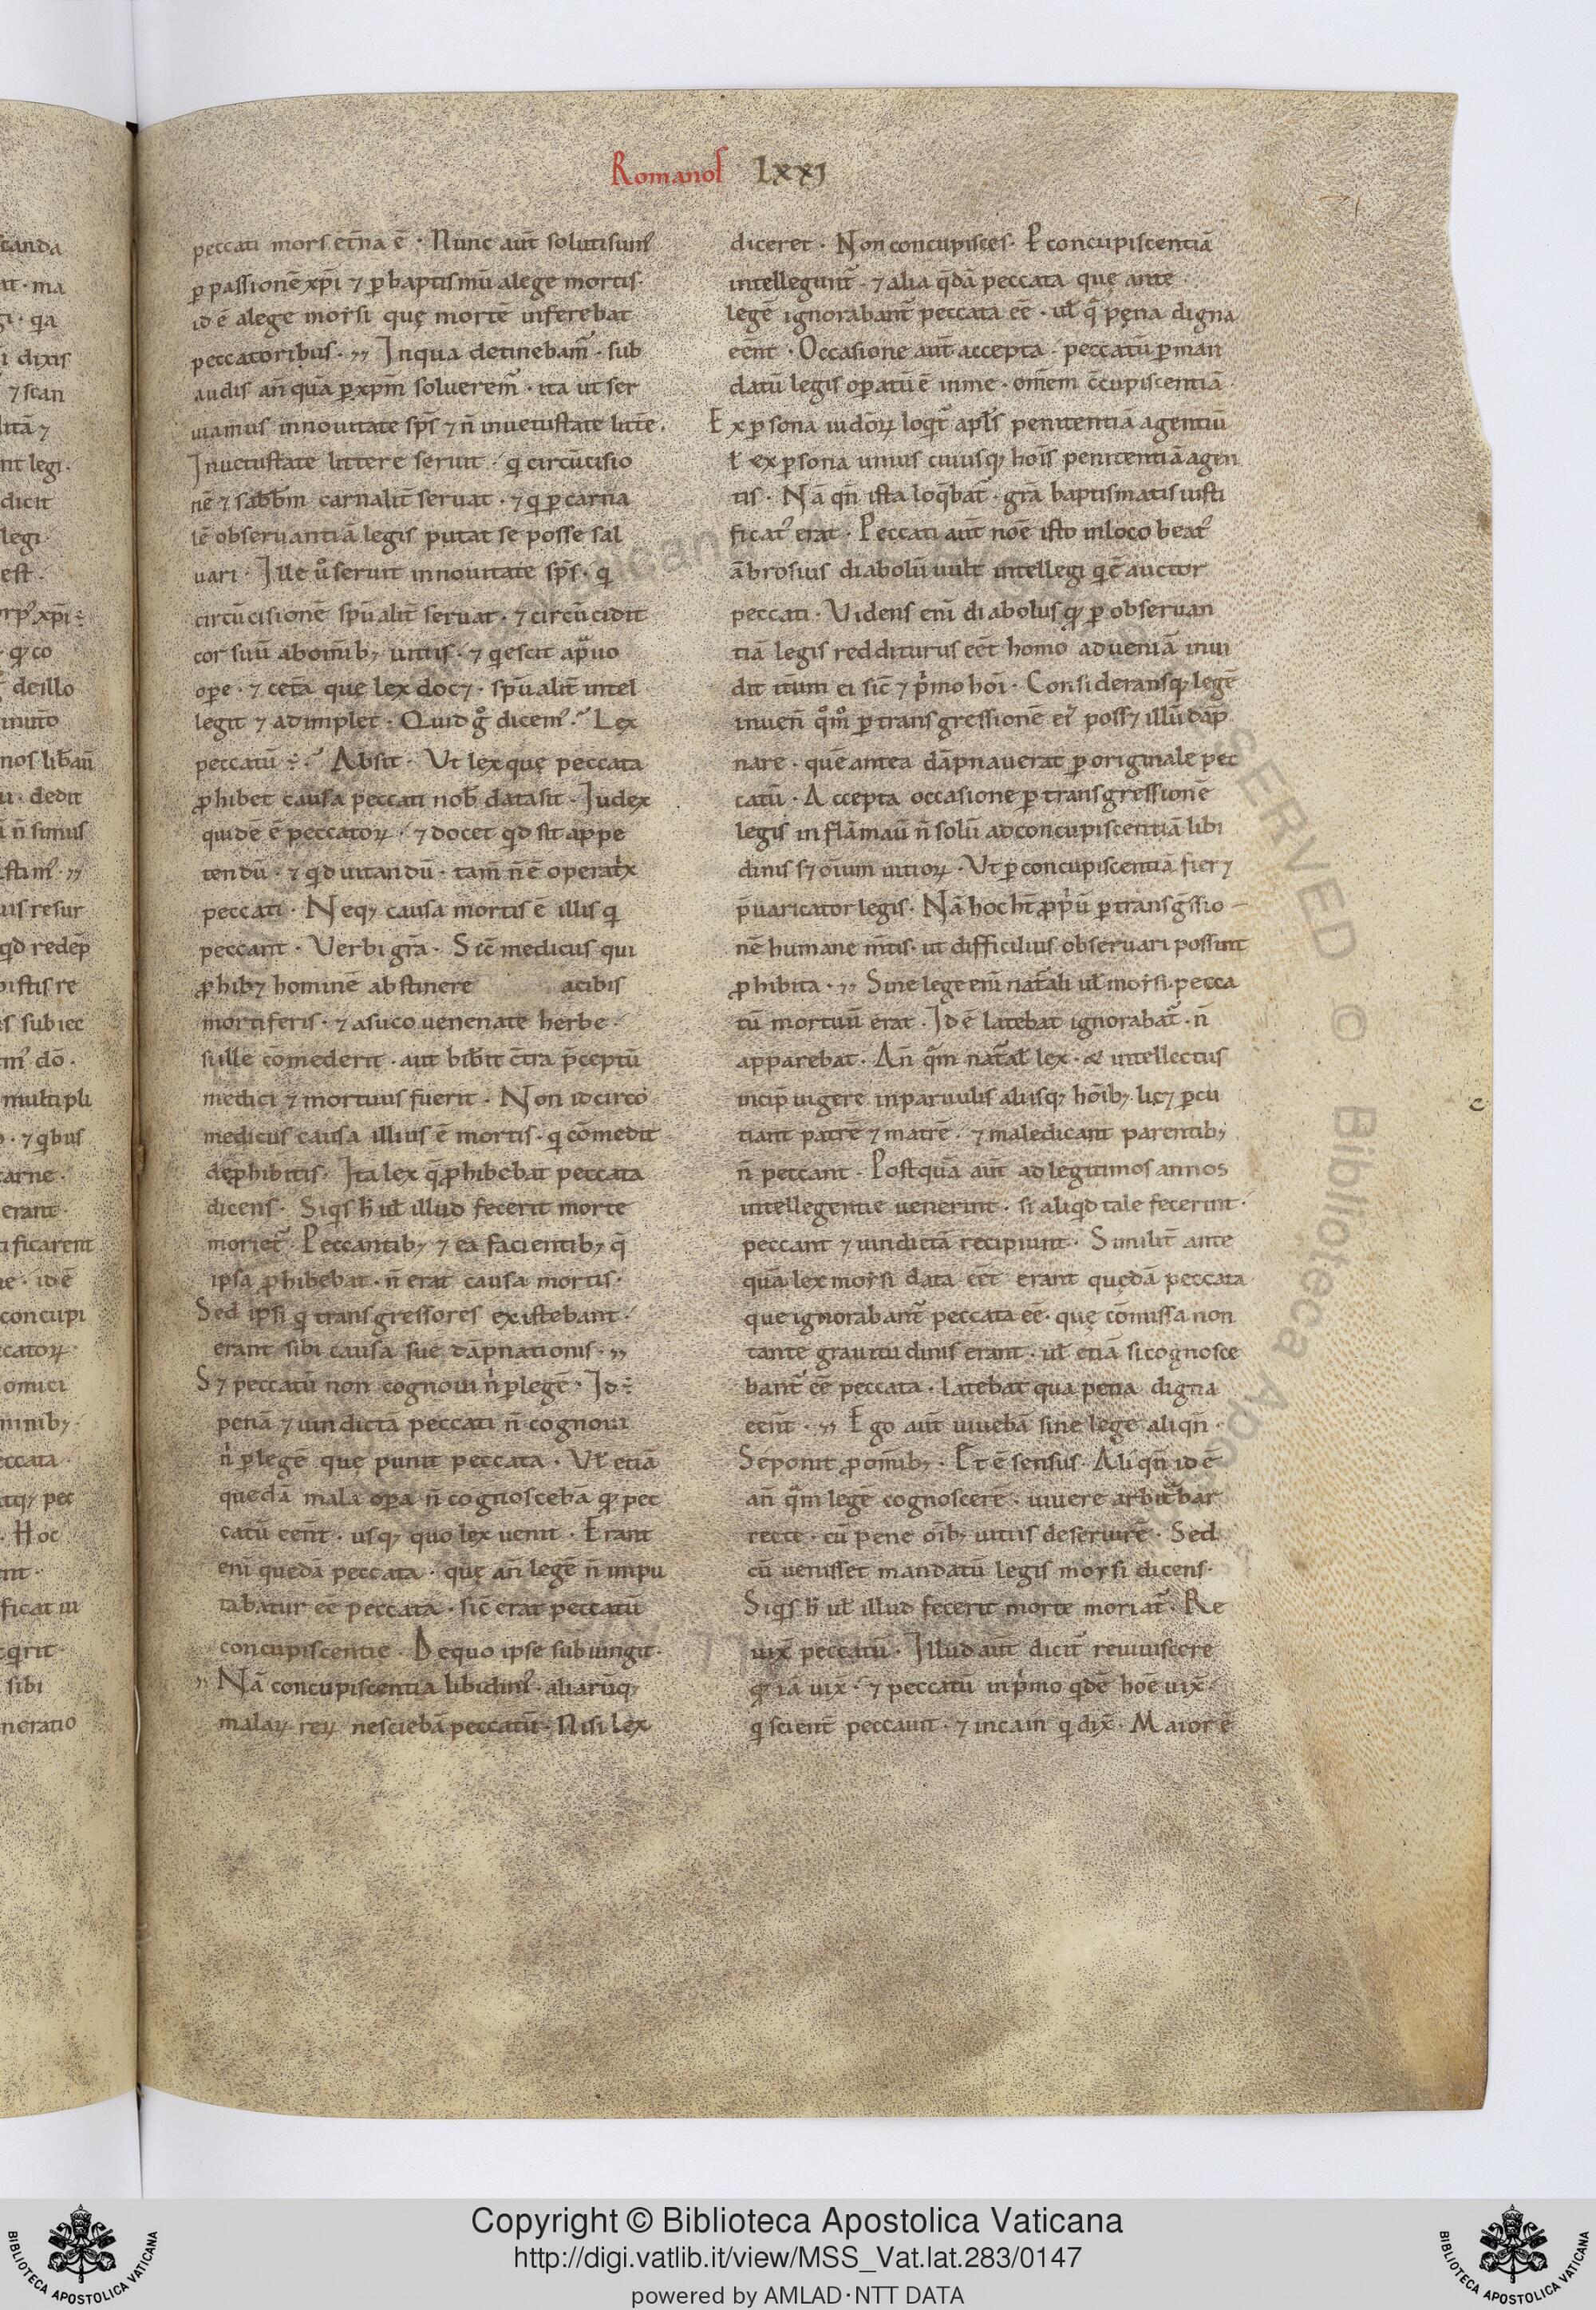 Romanoſ LXXI
71
peccati mors et̄na ē · Nunc aut̄ soluti sumꝰ
ꝑ passionē xp̄i ⁊ ꝑ baptismū a lege mortis·
id ē a lege moẏsi quę mortē inferebat
peccatoribus · Jn qua detinebam᷑ · sub
audis an̄ quā ꝑ xp̄m solueremꝰ · ita ut ser
uiamus in nouitate sp̄s ⁊ n̄ in uetustate litt̄e·
Jn uetustate littere seruit · q̇ circūcisio
nē ⁊ sabb̄m carnalit̄ seruat · ⁊ q̇ ꝑ carna
lē obseruantiā legis putat se posse sal
uari · Jlle u̇ seruit in nouitate sp̄s · q̇
circūcisionē sp̄ualit̄ seruat · ⁊ circūcidit
cor suū ab om̄ib; uitiis · ⁊ q̇escit a prauo
oꝑe · ⁊ cet̄a que lex doc⁊ · sp̄ualit̄ intel
legit ⁊ adimplet · Quid g̊ dicemꝰ · Lex
peccatū ÷ Absit · Ut lex quę peccata
ꝓhibet causa peccati nob̄ data sit · Judex
quidē ē peccatoꝝ · ⁊ docet qd̄ sit appe
tendū · ⁊ qd̄ uitandū · tam̄ n̄ ē operat̍x
peccati · Neq; causa mortis ē illis q̇
peccant · Verbi gr̄a · Sic̄ medicus qui
ꝓhib⁊ hominē abstinere a cibis
mortiferis · ⁊ a suco uenenate herbe ·
si ille cōmederit · aut bib̄it c̄tra p̄ceptū
medici ⁊ mortuus fuerit · Non idcirco
medicus causa illius ē mortis · q̇ cōmedit
de ꝓhibitis · Jta lex q̄ ꝓhibebat peccata
dicens · Siq̇s h̄ ul̄ illud fecerit morte
moriet᷑ · Peccantib; ⁊ ea facientib; q̄
ipsa ꝓhibebat · n̄ erat causa mortis ·
Sed ipsi q̇ transgressores existebant ·
erant sibi causa sue dāpnationis ·
S⁊ peccatū non cognoui n̍ ꝑ legē · Jd ÷
penā ⁊ uindictā peccati n̄ cognoui
n̍ ꝑ legē que punit peccata · Vl̄ etiā
quedā mala oꝑa n̄ cognoscebā qđ pec
catū eēnt · usq; quo lex uenit · Erant
eni̇ quedā peccata · quę an̄ legē n̄ impu
tabatur eē peccata · sic erat peccatū
concupiscentie · De quo ipse subiungit ·
Nā concupiscentia libidinꝰ · aliarūq;
malaꝝ reꝝ nesciebā peccatū · Nisi lex
diceret · Non concupisces · P concupiscentiā
intellegunt᷑ · ⁊ alia q̄dā peccata que ante
legē ignorabant᷑ peccata eē · ul̄ q̄ pęna digna
eēnt · Occasione aut̄ accepta · peccatū ꝑ man
datū legis oꝑatū ē in me · om̄em c̄cupiscentiā ·
Ex ꝑsona iudeoꝝ loqt᷑ apl̄s penitentiā agentiū
ł ex ꝑsona unius cuiusq; hoīs penitentiā agen
tis · Nā qn̄ ista loq̄bat᷑ · gr̄a baptismatis iusti
ficatꝰ erat · Peccati aut̄ noē isto in loco beatꝰ
ābrosius diabolū uult intellegi q̇ ē auctor
peccati · Videns eni̇ diabolus qđ ꝑ obseruan
tiā legis redditurus eēt homo ad ueniā inui
dit it̄um ei sic̄ ⁊ p̍mo hoī · Consideransq; legē
inuen̄ qm̊ ꝑ transgressionē eiꝰ poss⁊ illū dāp
nare · quē antea dāpnauerat ꝑ originale pec
catū · Accepta occasione ꝑ transgressionē
legis inflāmau̅ n̄ solū ad concupiscentiā libi
dinis s⁊ oīum uitioꝝ · Ut ꝑ concupiscentiā fier⁊
p̄uaricator legis · Nā hoc ht̄ ꝓp̍ū ꝑ transg̅ssio-
nē humane m̄tis · ut difficilius obseruari possint
ꝓhibita · Sine lege eni̇ nat᷑ali ul̄ moẏsi · pecca
tū mortuū erat · Jd ē latebat ignorabat᷑ · n̄
apparebat · An̄ q̄m nat᷑al̄ lex · æ intellectus
incip̄ uigere in paruulis aliisq; hōib; lic⁊ ꝑcu
tiant patrē ⁊ matrē · ⁊ maledicant parentib;
n̄ peccant · Postquā aut̄ ad legitimos annos
intellegentie uenerint · si aliqd̄ tale fecerint ·
peccant ⁊ uindictā recipiunt · Similit̄ ante
quā lex moẏsi data eēt erant quędā peccata
que ignorabant᷑ peccata eē · quę cōmissa non
tante grauitudinis erant · ul̄ etiā si cognosce
bant᷑ eē peccata · latebat qua pena digna
eēnt · Ego aut̄ uiuebā sine lege aliqn̄ ·
Se ponit ꝓ om̄ib; · Et ē sensus · Aliqn̄ id ē
an̄ q̄m legē cognoscerē · uiuere arbit᷑bar
recte · cū pene oīb; uitiis deseruirē · Sed
cū uenisset mandatū legis moẏsi dicens ·
Siq̇s h̄ ul̄ illud fecerit morte moriat᷑ · Re
uix̄ peccatū · Jllud aut̄ dicit᷑ reuiuiscere
qđ iā uix̄ · ⁊ peccatū in p̍mo qdē hoē uix̄ ·
q̇ scient̄ peccauit · ⁊ in cain q̇ dix̄ · Maior ē
Copyright © Biblioteca Apostolica Vaticana
http://digi.vatlib.it/view/MSS_Vat.lat.283/0147
powered by AMLAD·NTT DATA